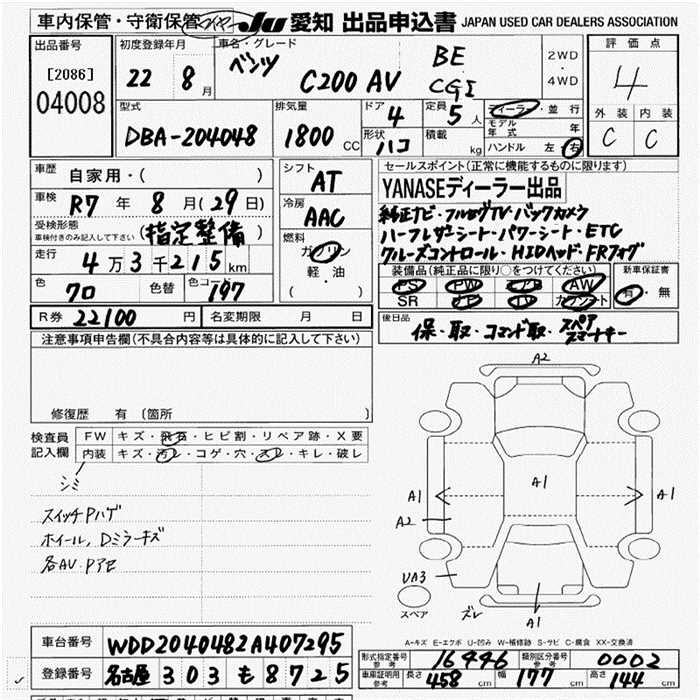 車内保管・守衛保管 JU 愛知 出品申込書 JAPAN USED CAR DEALERS ASSOCIATION
出品番号 初度登録年月 車名・グレード 評価点
[2086] 22 8月 ベンツ C200 AV BE CGI 2WD・4WD 4
04008
外装 内装
型式 排気量 ドア 4 定員 5人 ディーラー・並行
C C
DBA-204048 1800cc 形状 ハコ 積載 kg モデル年式 年
ハンドル 左・右
車歴 自家用・( )
シフト AT
セールスポイント(正常に機能するものに限ります)
車検 R7年 8月(29日)
冷房 AAC
YANASEディーラー出品
受検形態 車検付きのみ記入して下さい (指定整備)
純正ナビ・フルセグTV・バックカメラ
走行 4万3千215km
燃料 ガソリン・軽油 ( )
ハーフレザーシート・パワーシート・ETC
クルーズコントロール・HIDヘッド・FRフォグ
色 クロ 色替 色コード 197
装備品(純正品に限り○をつけてください) 新車保証書
PS PW AW 有・無
SR ナビ TV カワシート
R券 22100円 名変期限 月 日
後日品 保・取・コマンド取・スペアスマートキー
注意事項申告欄(不具合内容等は具体的に記入して下さい)
修復歴 有 [箇所 ]
検査員記入欄 FW キズ・飛石・ヒビ割・リペア跡・X要
内装 キズ・汚レ・コゲ・穴・スレ・キレ・破レ
シミ
スイッチPハゲ
ホイール、Dミラーキズ
各AV.Pアセ
A2
A1 A1 A1
A2
UA3
スペア ズレ A1
A-キズ E-エクボ U-凹み W-補修跡 S-サビ C-腐食 XX-交換済
車台番号 WDD2040482A407295
型式指定番号 参考 16446 類別区分番号 参考 0002
登録番号 名古屋 303 も 8725
車庫証明用 参考 長さ 458cm 幅 177cm 高さ 144cm